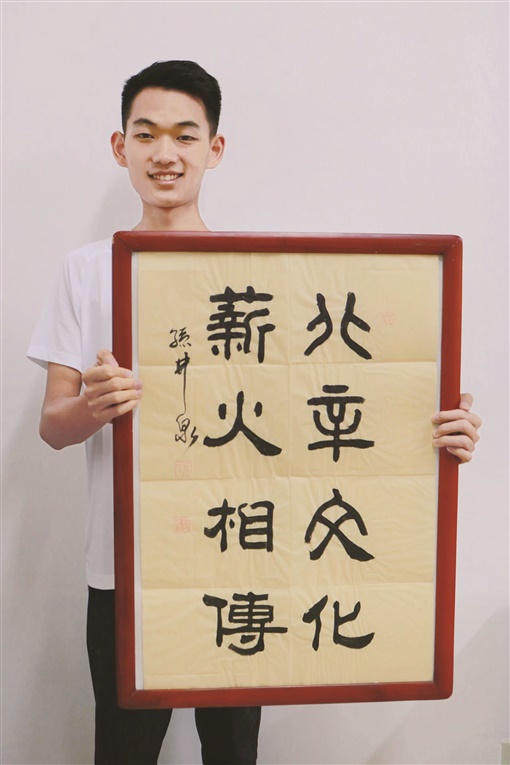 北辛文化
薪火相傳
孫井泉